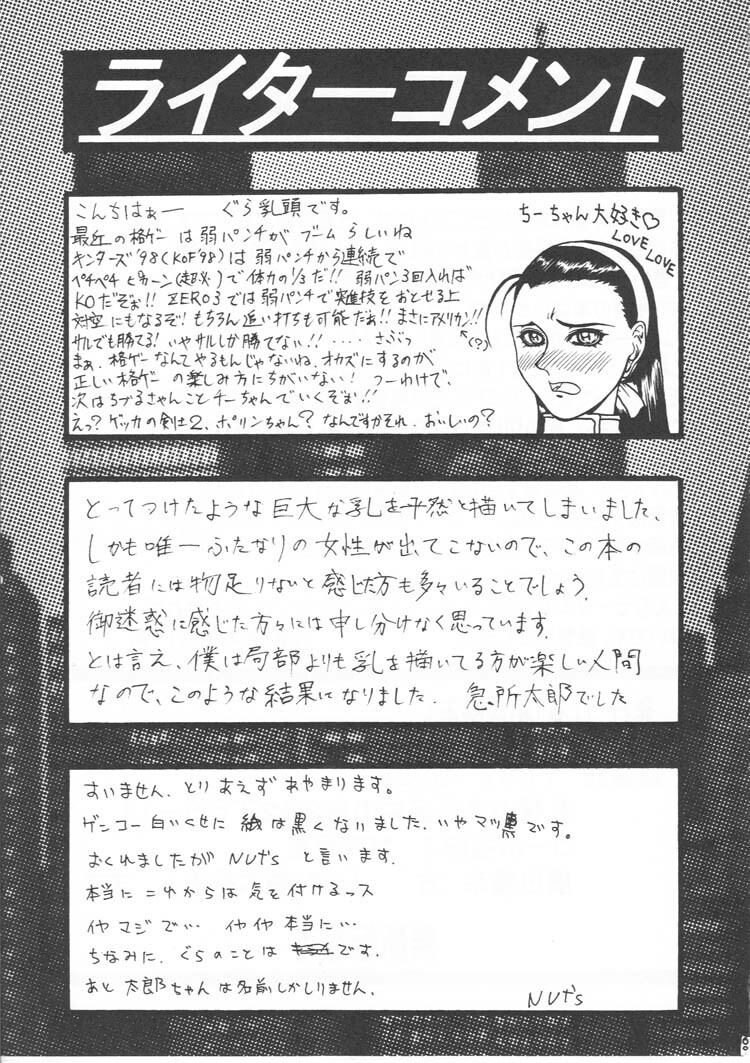 ライターコメント
こんちはぁー　ぐら乳頭です。
最近の格ゲーは弱パンチがブームらしいね
キンターズ'98(KOF'98)は弱パンチから連続で
ペチペチピキーン(超必)で体力の1/3だ!! 弱パン3回入れば
KOだぞぉ!! ZERO3では弱パンチで突進技をおとせる上
対空にもなるぞ! もちろん追い打ちも可能だぁ!! まさにアメリカン!!
サルでも勝てる! いやサルしか勝てない!! ‥‥さぶっ
まぁ、格ゲーなんてやるもんじゃないね、オカズにするのが
正しい格ゲーの楽しみ方にちがいない! つーわけで、
次はちづるさんことチーちゃんでいくぞぉ!!
えっ? ゲッカの剣士2、ポリンちゃん? なんですかそれ、おいしいの?
ちーちゃん大好き♡
LOVE LOVE
(?)
とってつけたような巨大な乳を平然と描いてしまいました、
しかも唯一ふたなりの女性が出てこないので、この本の
読者には物足りないと感じた方も多々いることでしょう.
御迷惑に感じた方々には申し分けなく思っています.
とは言え、僕は局部よりも乳を描いてる方が楽しい人間
なので、このような結果になりました.　急所太郎でした
すいません. とりあえずあやまります。
ゲンコー白いくせに 紙は黒くないました. いやマッ黒です。
おくれましたが NUts と言います.
本当に これからは 気を付けるっス
イヤ マジで…　イヤイヤ 本当に…
ちなみに. ぐらのことは です.
あと 太郎ちゃんは名前しかしりません.
NUts